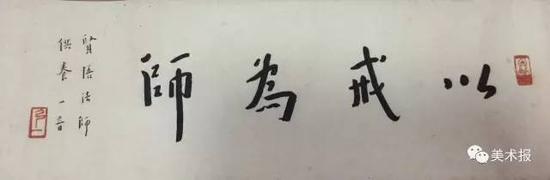 以戒為師
賢悟法師
供養 一音
美术报